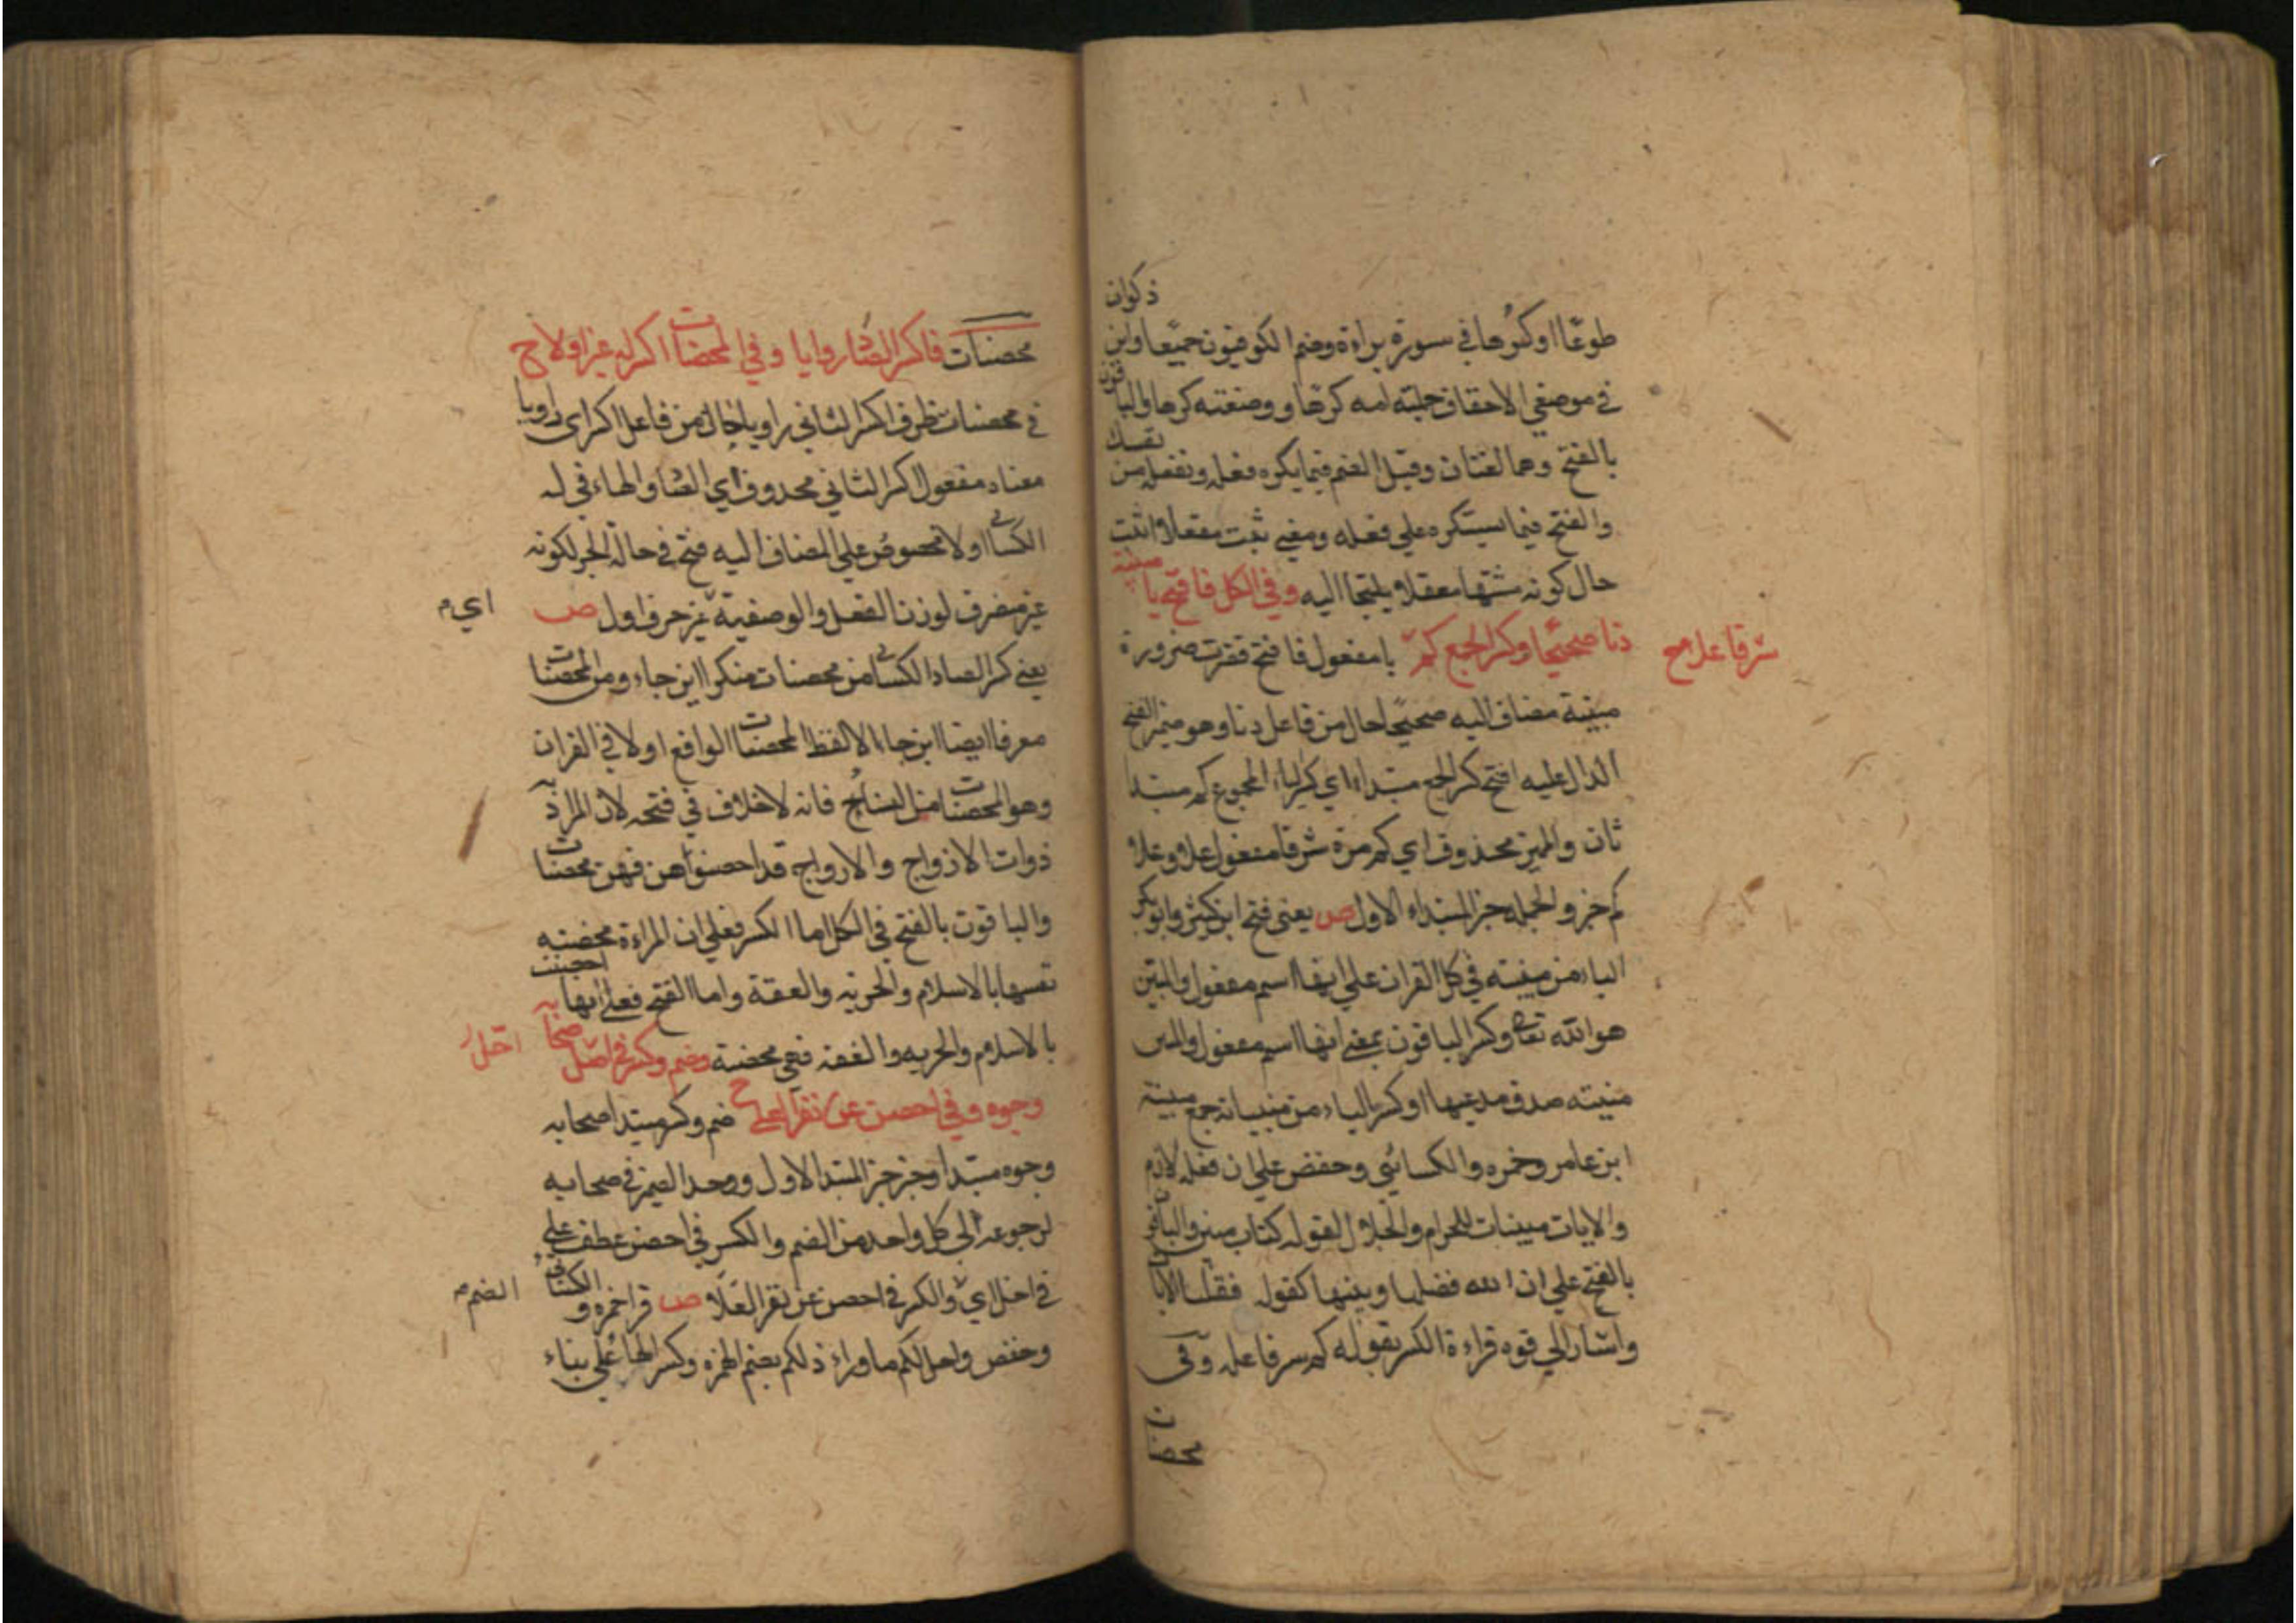 ذكوان
طوعًا او كرها في سورة براءة وضم الكوفيون جميعا وابن
في موضعي الاحقاف حملته امه كرها و وضعته كرها والبا
قون
بالفتح وهما لغتان وقيل الضم فيما يكره فعله من
نفسك
والفتح فيما يستكره علي فعله ومعني ثبت معقلا اثبت
حال كونه معقلا يلتجا اليه وفي الكل فافتح يا
مبينة
دنا صحيحًا وكسر الجمع كم يا مفعول فافتح ضرورة
شرفا علا مح
مبينة مضاف اليه صحيحًا حال من فاعل دنا وهو ضمير الفتح
الدال عليه افتح كسر الجمع مبتداء اي كسر الياء المجموع كم مبتدا
ثان والمميز محذوف اي كم مرة شرفا مفعول علا وعلا
كم خبر والجملة خبر المبتداء الاول ص يعني فتح ابن كثير وابو بكر
الياء من مبينة في كل القران علي انها اسم مفعول والمبين
هو الله تعالي وكسر الباقون بمعني انها اسم مفعول والمبين
مبينة صدق مدعيها او كسر الياء من مبينات جمع مبينة
ابن عامر وحمزه والكسائي وحفض علي ان فعله لازم
والايات مبينات للحرام والحلال لقوله كتاب مبين والباقو
ن
بالفتح علي ان الله فضلها وبينها كقوله فصلنا الايا
ت
واشار الي قوه قراءة الكسر بقوله كم سرفا علا وفي
محصنات
محصنات فاكسر الصاد راويا وفي المحصنات اكسر له غير اولا ح
في محصنات ظرف اكسر الثاني راويا حال من فاعل اكسر اي راويا
معناه مفعول اكسر الثاني محذوف اي الصاد والهاء في له
الكسائي اولا علي المضاف اليه فتح في حالة الجر لكونه
غير منصرف لوزن الفعل والوصفية غير حرف اول ص
اي م
يعني كسر الصاد الكسائي من محصنات منكرا اين جاء ومن المحصنات
معرفا ايضا اين جاء الا لفظ المحصنات الواقع اولا في القران
وهو المحصنات من النساء فانه لاخلاف في فتحه لان المراد به
ذوات الازواج والازواج قد احصنوا هن فهن محصنات
والباقون بالفتح في الكل اما الكسر فعلي ان المراءة محصنه
نفسها بالاسلام والحريه والعفة واما الفتح فعلي انها
احصنت
بالاسلام والحريه والعفه فهي محصنة وضم وكسر في احل صحابه
احل
وجوه وفي احصن عن نفر العلا ح ضم وكسر مبتدا صحابه
وجوه مبتدا وخبر خبر المبتدا الاول ووحد الضمير في صحابه
لرجوعه الي كل واحد من الضم والكسر في احصن عطف علي
في احل اي والكسر في احصن عن نفر العلا ص قرا حمزه و
الكسائي
الضم م
وحفص واحل لكم ماوراء ذلكم بضم الهمزه وكسر الحا علي بناء